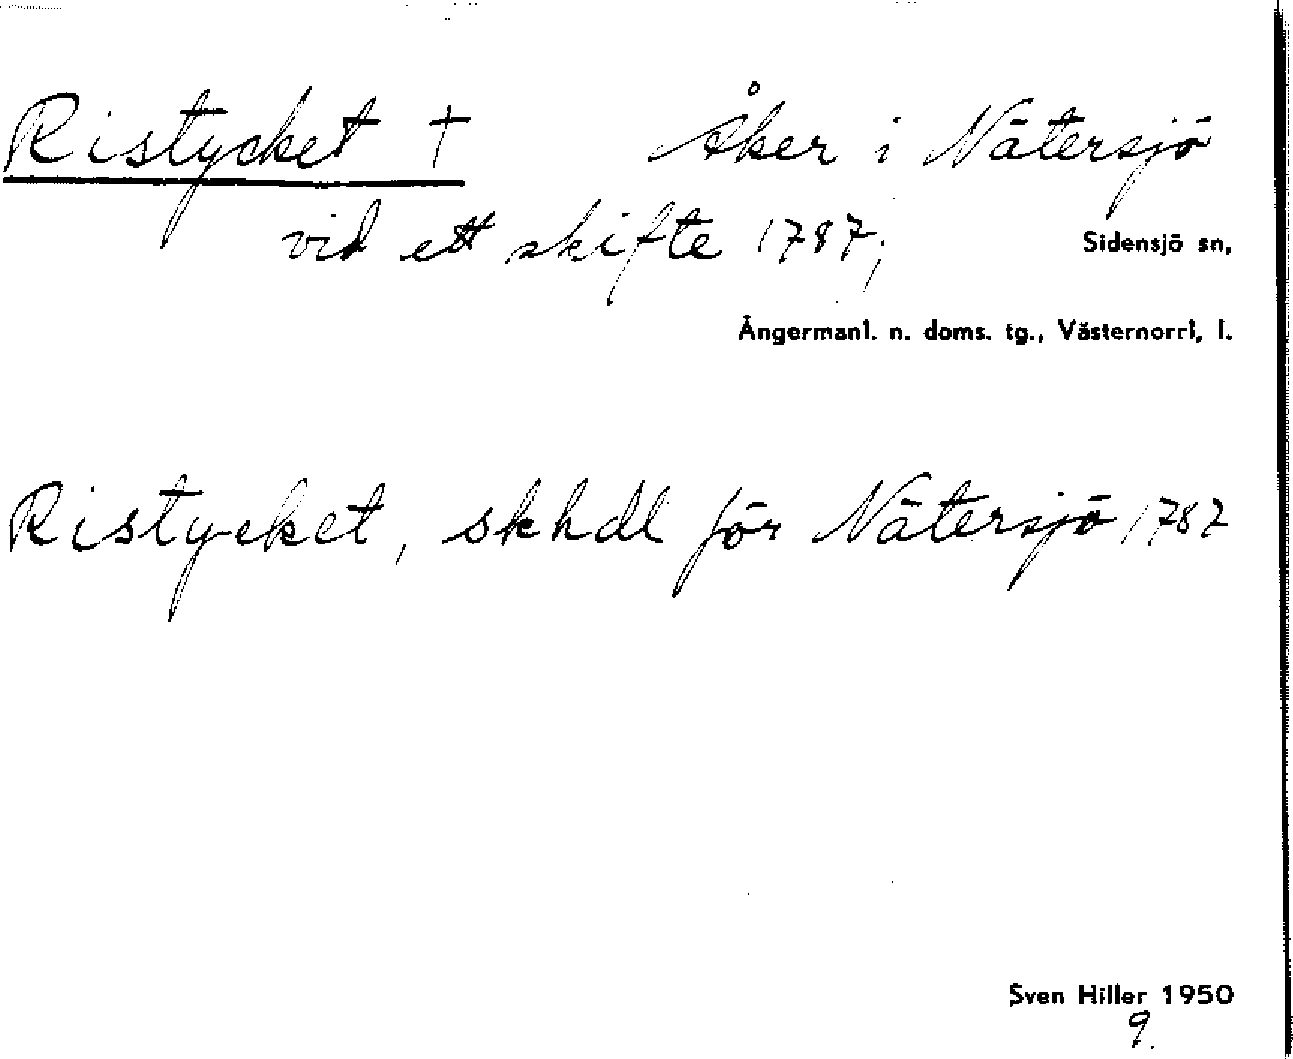 Ristycket † Åker i Nätersjö
vid ett skifte 1787;
Sidensjö sn,
Ångermanl. n. doms. tg., Västernorrl, l.
Ristycket, skhdl för Nätersjö 1787
Sven Hiller 1950
9.